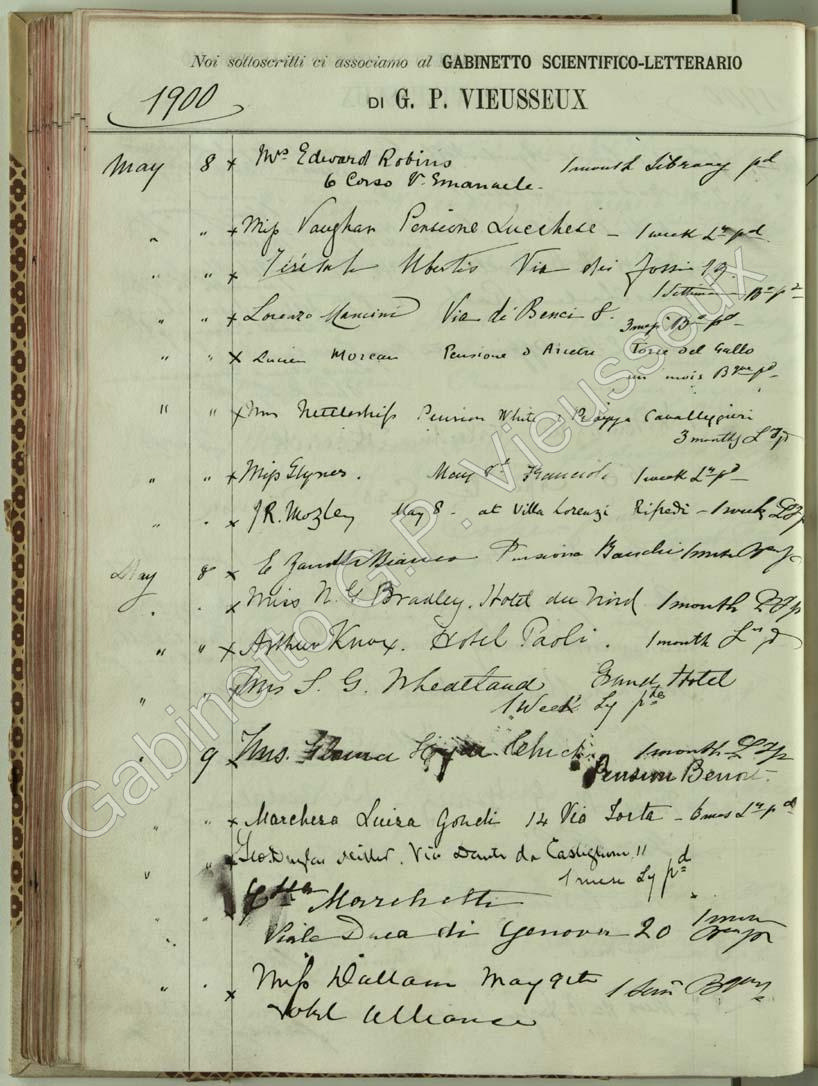 Noi sottoscritti ci associamo al GABINETTO SCIENTIFICO-LETTERARIO
1900
DI G. P. VIEUSSEUX
May 8 x Mrs Edward Robins 1 month Library pd
6 Corso V. Emanuele.
" " x Miss Vaughan Pensione Lucchese - 1 week Ly pd
" " x Ubertis Via dei Fossi 19.
1 settimana pd
" " x Lorenzo Mancini Via de' Benci 8. 3 mesi pd
" " x Lucien Moreau Pensione d'Arcetri Torre del Gallo
un mois pd
" " x Mrs Nettleship Pension White Piazza Cavalleggieri
3 months Ly pd
" " x Miss Glynes. May 8th 1 week Ly pd
" " x J R. Mozley May 8 - at Villa Lorenzi Rifredi - 1 week Ly p
May 8 x E Zanotti Bianco Pensione Banchi 1 mese
" " x Miss N. G. Bradley. Hotel du Nord 1 month Ly p
" " x Arthur Knox. Hotel Paoli. 1 month Ly pd
" " x Mrs S. G. Wheatland Grand Hotel
1 Week Ly pd
" 9 x Mrs. 1 month Ly p
Pension Benoit.
" " x Marchesa Luisa Gondi 14 Via Torta - 6 mos Ly pd
" " x Miller. Via Dante da Castiglione 11
1 mese Ly pd
" " x Marchetti
Viale Duca di Genova 20 1 mese
" " x Miss Dallam May 9th 1
Hotel Alliance
Gabinetto G.P. Vieusseux